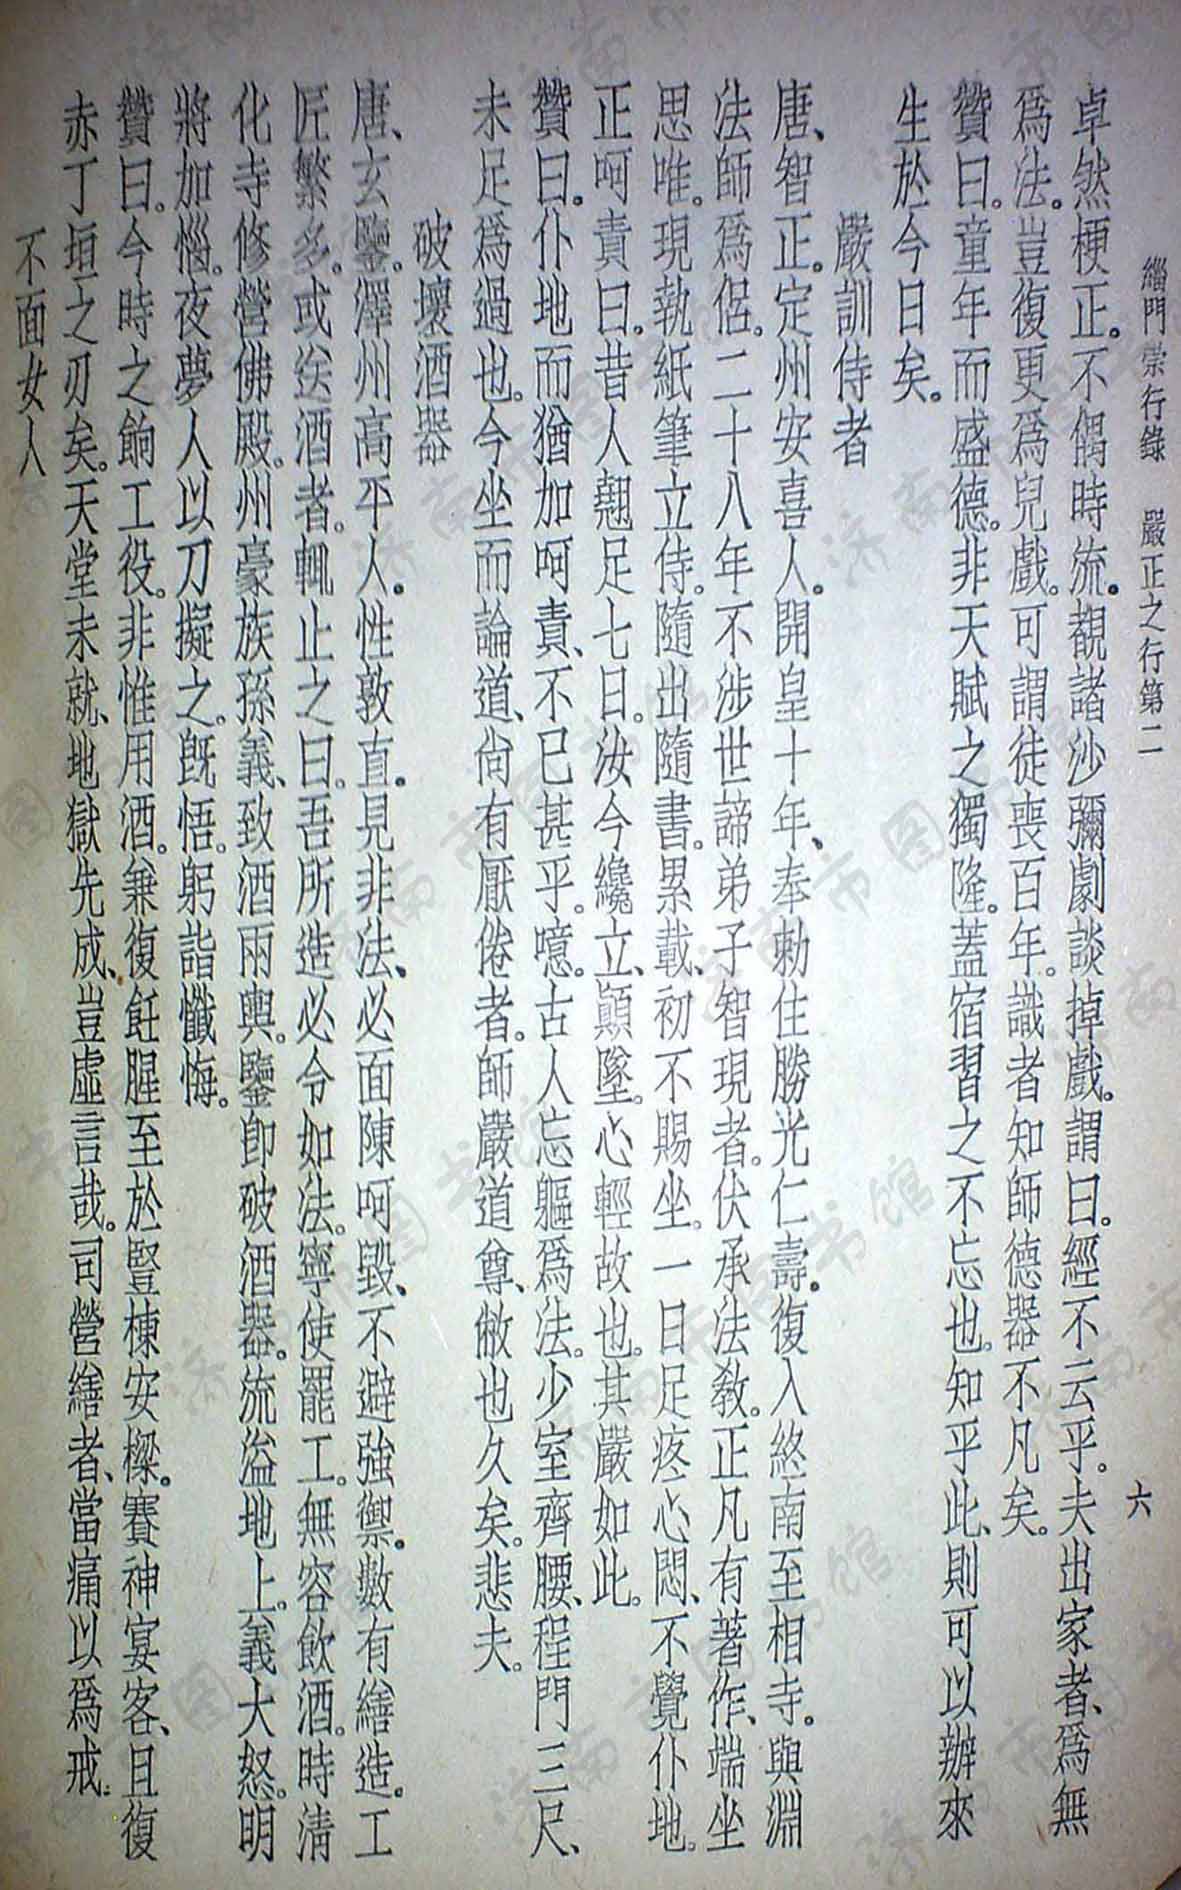 緇門崇行錄　嚴正之行第二　六
卓然梗正。不偶時流。覩諸沙彌劇談掉戲。謂曰。經不云乎。夫出家者、爲無
爲法。豈復更爲兒戲。可謂徒喪百年。識者知師德器不凡矣。
贊曰。童年而盛德。非天賦之獨隆。蓋宿習之不忘也。知乎此、則可以辦來
生於今日矣。
嚴訓侍者
唐、智正。定州安喜人。開皇十年、奉勅住勝光仁壽。復入終南至相寺。與淵
法師爲侶。二十八年不涉世諦弟子智現者。伏承法教。正凡有著作、端坐
思唯。現執紙筆立侍。隨出隨書。累載、初不賜坐。一日足疼心悶、不覺仆地。
正呵責曰。昔人翹足七日。汝今纔立、顚墜。心輕故也。其嚴如此。
贊曰。仆地而猶加呵責、不已甚乎。噫。古人忘軀爲法。少室齊腰、程門三尺、
未足爲過也。今坐而論道、尙有厭倦者。師嚴道尊、敝也久矣。悲夫。
破壞酒器
唐、玄鑒。澤州高平人。性敦直。見非法、必面陳呵毀、不避強禦。數有繕造。工
匠繁多。或送酒者。輒止之曰。吾所造必令如法。寧使罷工。無容飲酒。時淸
化寺修營佛殿。州豪族孫義、致酒兩輿。鑒卽破酒器。流溢地上。義大怒。明
將加惱。夜夢人以刀擬之。旣悟。躬詣懺悔。
贊曰。今時之餉工役。非惟用酒。兼復飪腥至於豎棟安樑。賽神宴客、且復
赤丁垣之刃矣。天堂未就、地獄先成、豈虛言哉。司營繕者、當痛以爲戒。
不面女人
济南市图书馆